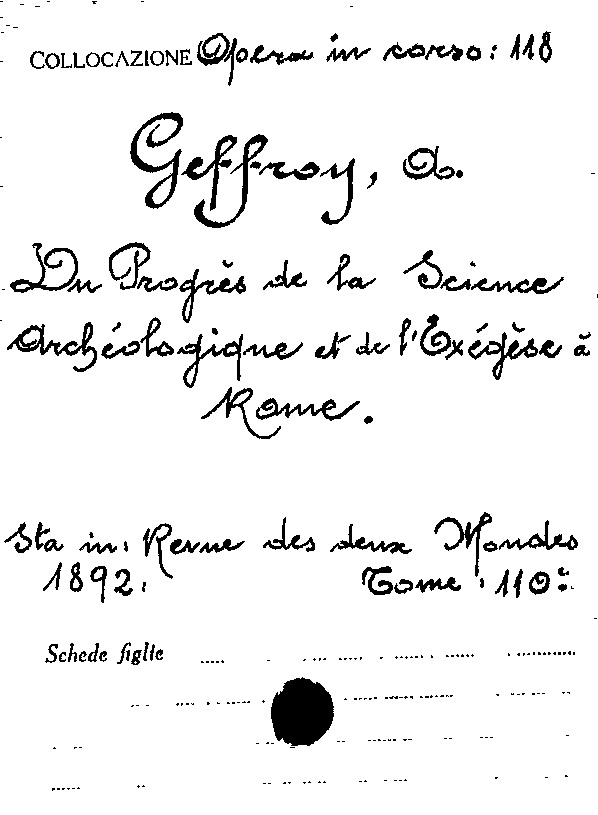 COLLOCAZIONE Opera in corso: 118
Geffroy, A.
Du Progrès de la Science
Archéologique et de l'Exégèse à
Rome.
Sta in: Revue des deux Mondes
1892. Tome: 110º:
Schede figlie